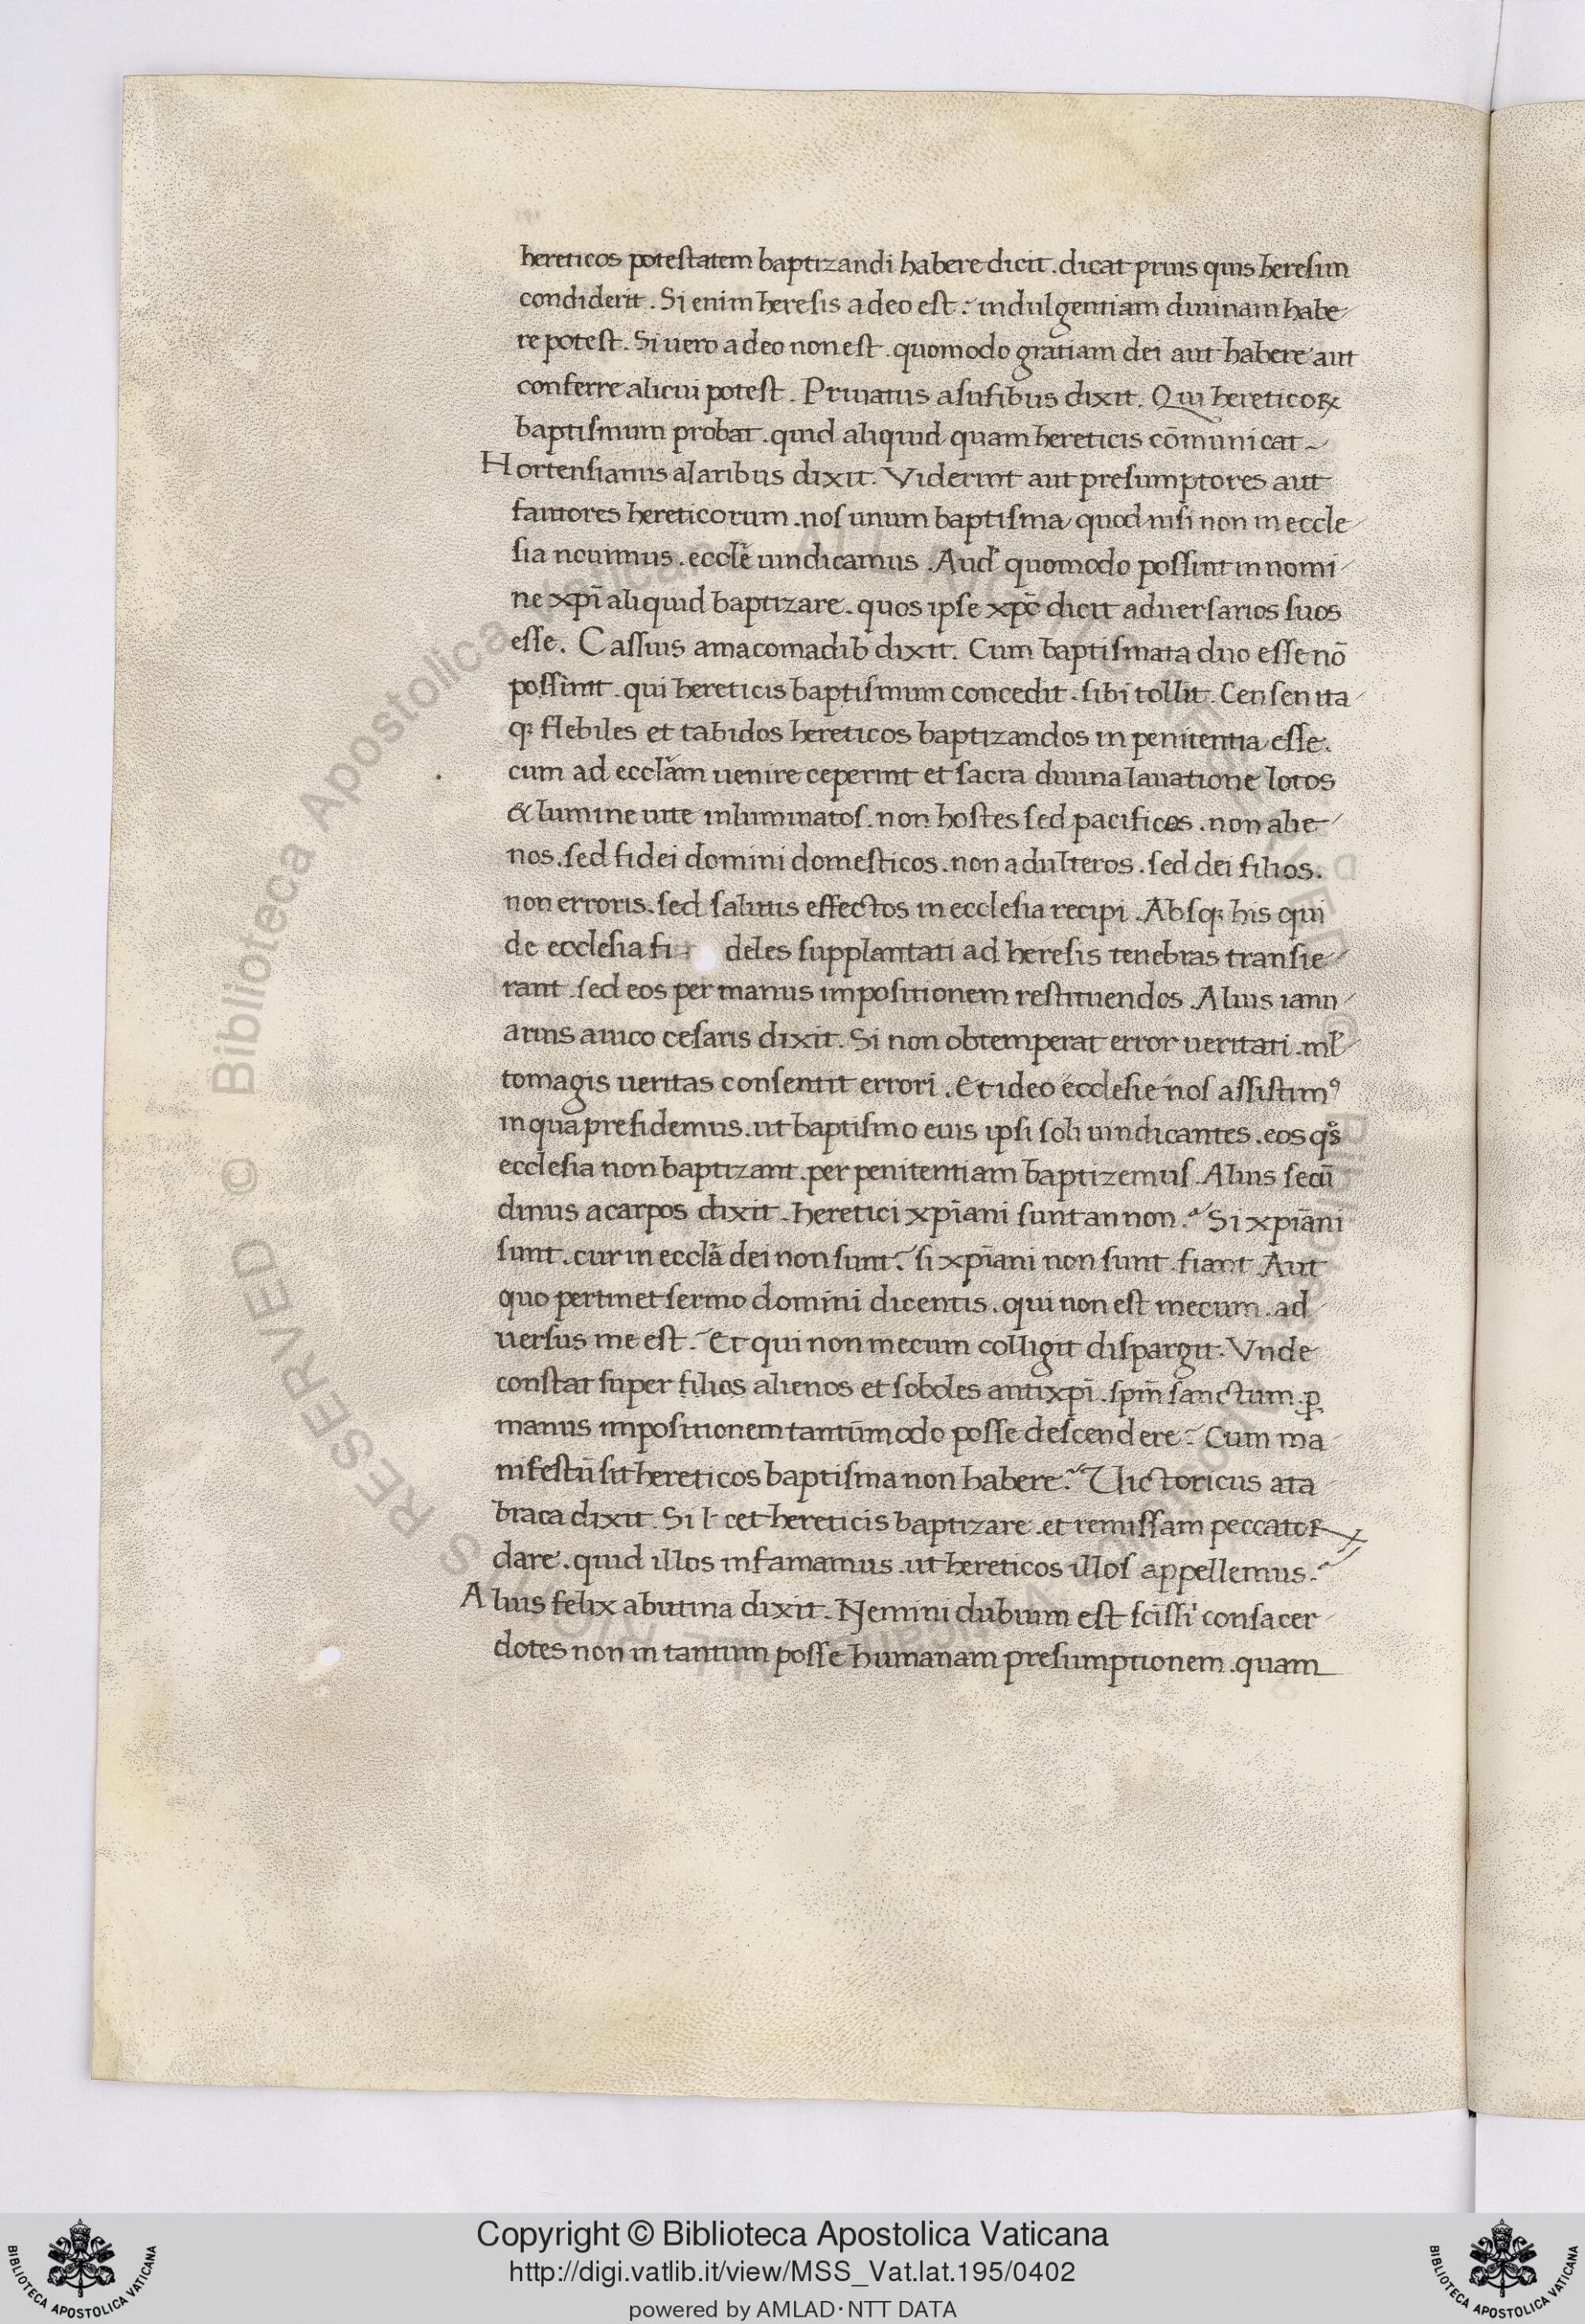 hereticos potestatem baptizandi habere dicit . dicat prius quis heresim
condiderit . Si enim heresis a deo est : indulgentiam diuinam habe
re potest . Si uero a deo non est . quomodo gratiam dei aut habere aut
conferre alicui potest . Priuatus asufibus dixit . Qui hereticoꝝ
baptismum probat . quid aliquid quam hereticis cōmunicat
Hortensianus alaribus dixit . Viderint aut presumptores aut
fautores hereticorum . nos unum baptisma quod nisi non in eccle
sia nouimus . eccłe uindicamus . Aud' quomodo possint in nomi
ne xpī aliquid baptizare . quos ipse xpc̄ dicit aduersarios suos
esse . Cassius amacomadib dixit . Cum baptismata duo esse nō
possint . qui hereticis baptismum concedit . sibi tollit . Censen ita
qꝫ flebiles et tabidos hereticos baptizandos in penitentia esse .
cum ad eccłam uenire ceperint et sacra diuina lauatione lotos
& lumine uite inluminatos . non hostes sed pacificos . non alie
nos . sed fidei domini domesticos . non adulteros . sed dei filios .
non erroris . sed salutis effectos in ecclesia recipi . Absqꝫ his qui
de ecclesia fi deles supplantati ad heresis tenebras transie
rant . sed eos per manus impositionem restituendos . Alius ianu
arius auico cesaris dixit . Si non obtemperat error ueritati . ml'
tomagis ueritas consentit errori . Et ideo ecclesie nos assistimꝰ
in qua presidemus . ut baptismo eius ipsi soli uindicantes . eos qͦs
ecclesia non baptizant . per penitentiam baptizemus . Alius secū
dinus acarpos dixit . heretici xpīani sunt an non . Si xpīani
sunt . cur in eccła dei non sunt . si xpīani non sunt . fiant Aut
quo pertinet sermo domini dicentis . qui non est mecum . ad
uersus me est . Et qui non mecum colligit dispargit . Vnde
constat super filios alienos et soboles antixpī . spm̄ sanctum . ꝑ
manus impositionem tantūmodo posse descendere . Cum ma
nifestū sit hereticos baptisma non habere . Uictoricus ata
braca dixit . Si l cet hereticis baptizare . et remissam peccatoꝝ
dare . quid illos infamamus . ut hereticos illos appellemus .
Alius felix abutina dixit . Nemini dubium est scissi consacer
dotes non in tantum posse humanam presumptionem . quam
Copyright © Biblioteca Apostolica Vaticana
http://digi.vatlib.it/view/MSS_Vat.lat.195/0402
powered by AMLAD·NTT DATA
BIBLIOTECA APOSTOLICA VATICANA
BIBLIOTECA APOSTOLICA VATICANA